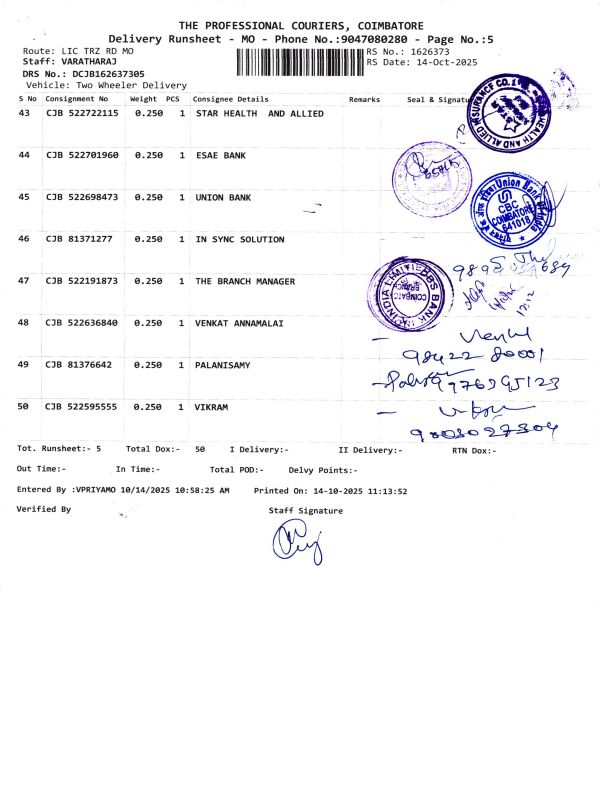 THE PROFESSIONAL COURIERS, COIMBATORE
Delivery Runsheet - MO - Phone No.:9047080280 - Page No.:5
Route: LIC TRZ RD MO
RS No.: 1626373
Staff: VARATHARAJ
RS Date: 14-Oct-2025
DRS No.: DCJB162637305
Vehicle: Two Wheeler Delivery
S No Consignment No Weight PCS Consignee Details Remarks Seal & Signatu
43 CJB 522722115 0.250 1 STAR HEALTH AND ALLIED
44 CJB 522701960 0.250 1 ESAE BANK
45 CJB 522698473 0.250 1 UNION BANK
Union Bank of India
CBC
COIMBATORE
641018
46 CJB 81371277 0.250 1 IN SYNC SOLUTION
47 CJB 522191873 0.250 1 THE BRANCH MANAGER
48 CJB 522636840 0.250 1 VENKAT ANNAMALAI
98422 80001
49 CJB 81376642 0.250 1 PALANISAMY
9976395123
50 CJB 522595555 0.250 1 VIKRAM
9003027304
Tot. Runsheet:- 5 Total Dox:- 50 I Delivery:- II Delivery:- RTN Dox:-
Out Time:- In Time:- Total POD:- Delvy Points:-
Entered By :VPRIYAMO 10/14/2025 10:58:25 AM Printed On: 14-10-2025 11:13:52
Verified By Staff Signature